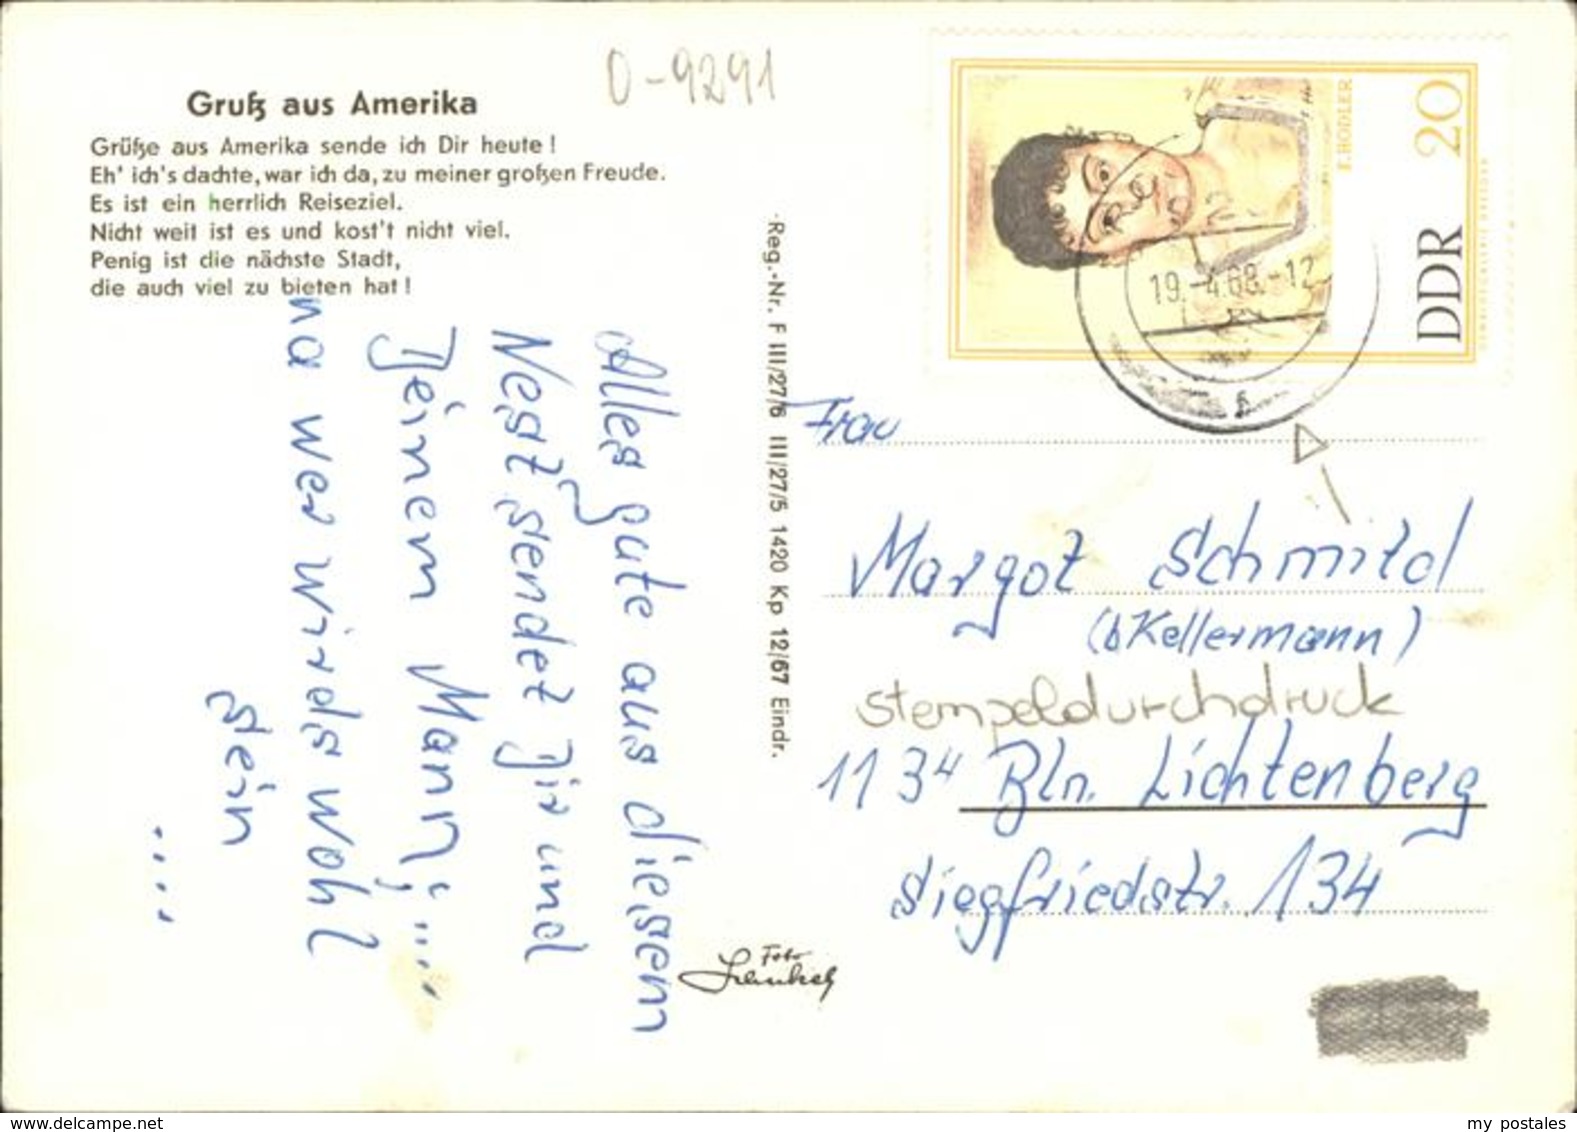 0-9291
Gruß aus Amerika
Grüße aus Amerika sende ich Dir heute!
Eh' ich's dachte, war ich da, zu meiner großen Freude.
Es ist ein herrlich Reiseziel.
Nicht weit ist es und kost't nicht viel.
Penig ist die nächste Stadt,
die auch viel zu bieten hat!
Alles gute aus diesem
Nest sendet Dir und
Deinem Mann; ....
na wer wirds wohl
sein
....
Reg.-Nr. F III/27/6 III/27/5 1420 Kp 12/67 Eindr.
Foto
F. HODLER
20
DDR
19.-4.68.-12
Frau
Margot Schmild
(b Kellermann)
stempeldurchdruck
1134 Bln. Lichtenberg
Siegfriedstr. 134
www.delcampe.net
my postales